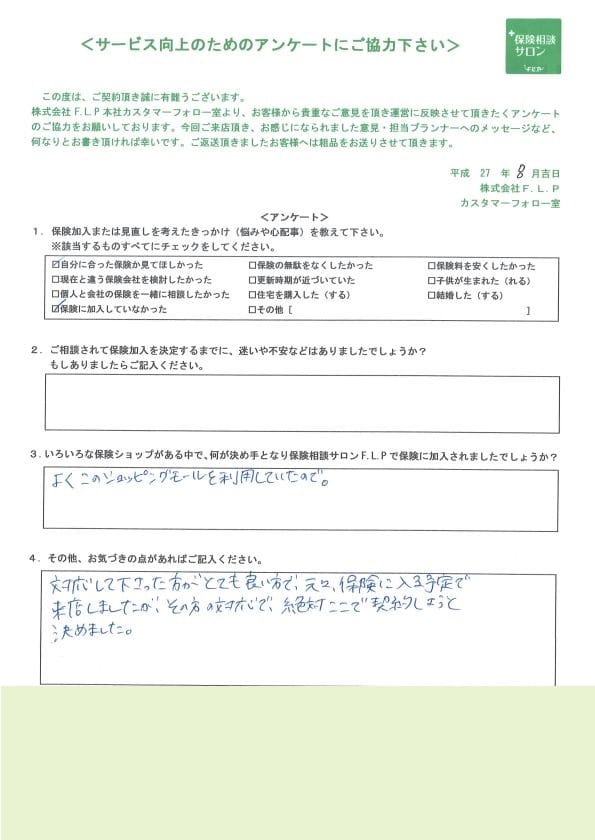 ＜サービス向上のためのアンケートにご協力下さい＞
保険相談
サロン
F.L.P
この度は、ご契約頂き誠に有難うございます。
株式会社F.L.P本社カスタマーフォロー室より、お客様から貴重なご意見を頂き運営に反映させて頂きたくアンケート
のご協力をお願いしております。今回ご来店頂き、お感じになられました意見・担当プランナーへのメッセージなど、
何なりとお書き頂ければ幸いです。ご返送頂きましたお客様へは粗品をお送りさせて頂きます。
平成 27 年 8 月吉日
株式会社F.L.P
カスタマーフォロー室
＜アンケート＞
1．保険加入または見直しを考えたきっかけ（悩みや心配事）を教えて下さい。
※該当するものすべてにチェックをしてください。
☑自分に合った保険か見てほしかった □保険の無駄をなくしたかった □保険料を安くしたかった
□現在と違う保険会社を検討したかった □更新時期が近づいていた □子供が生まれた（れる）
□個人と会社の保険を一緒に相談したかった □住宅を購入した（する） □結婚した（する）
☑保険に加入していなかった □その他［ ］
2．ご相談されて保険加入を決定するまでに、迷いや不安などはありましたでしょうか？
もしありましたらご記入ください。
3．いろいろな保険ショップがある中で、何が決め手となり保険相談サロンF.L.Pで保険に加入されましたでしょうか？
よくこのショッピングモールを利用していたので。
4．その他、お気づきの点があればご記入ください。
対応して下さった方がとても良い方で、元々、保険に入る予定で
来店しましたが、その方の対応で、絶対ここで契約しようと
決めました。